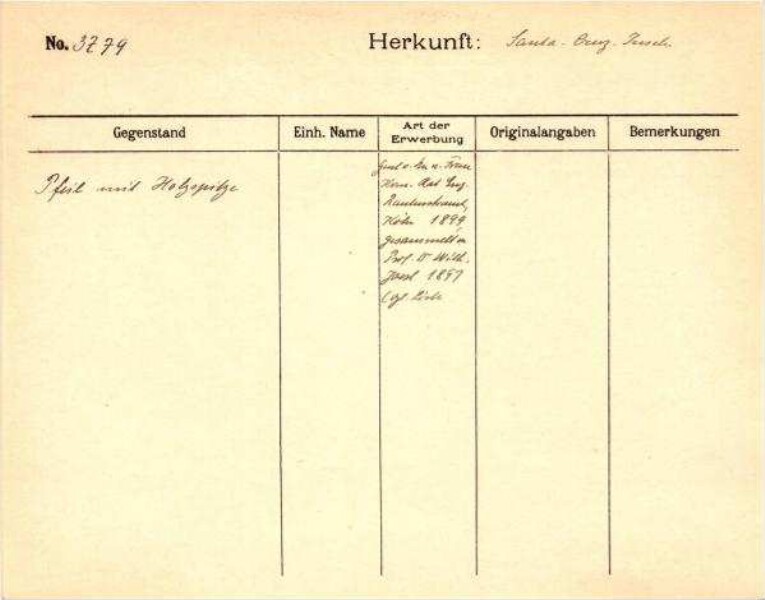 No. 3779 Herkunft: Santa-Cruz-Inseln.
Gegenstand Einh. Name Art der Erwerbung Originalangaben Bemerkungen
Pfeil mit Holzspitze
Kom. Rat Eug.
Rautenstrauch,
Köln 1899
gesammelt v.
Prof. Dr Wilh.
Joest 1897